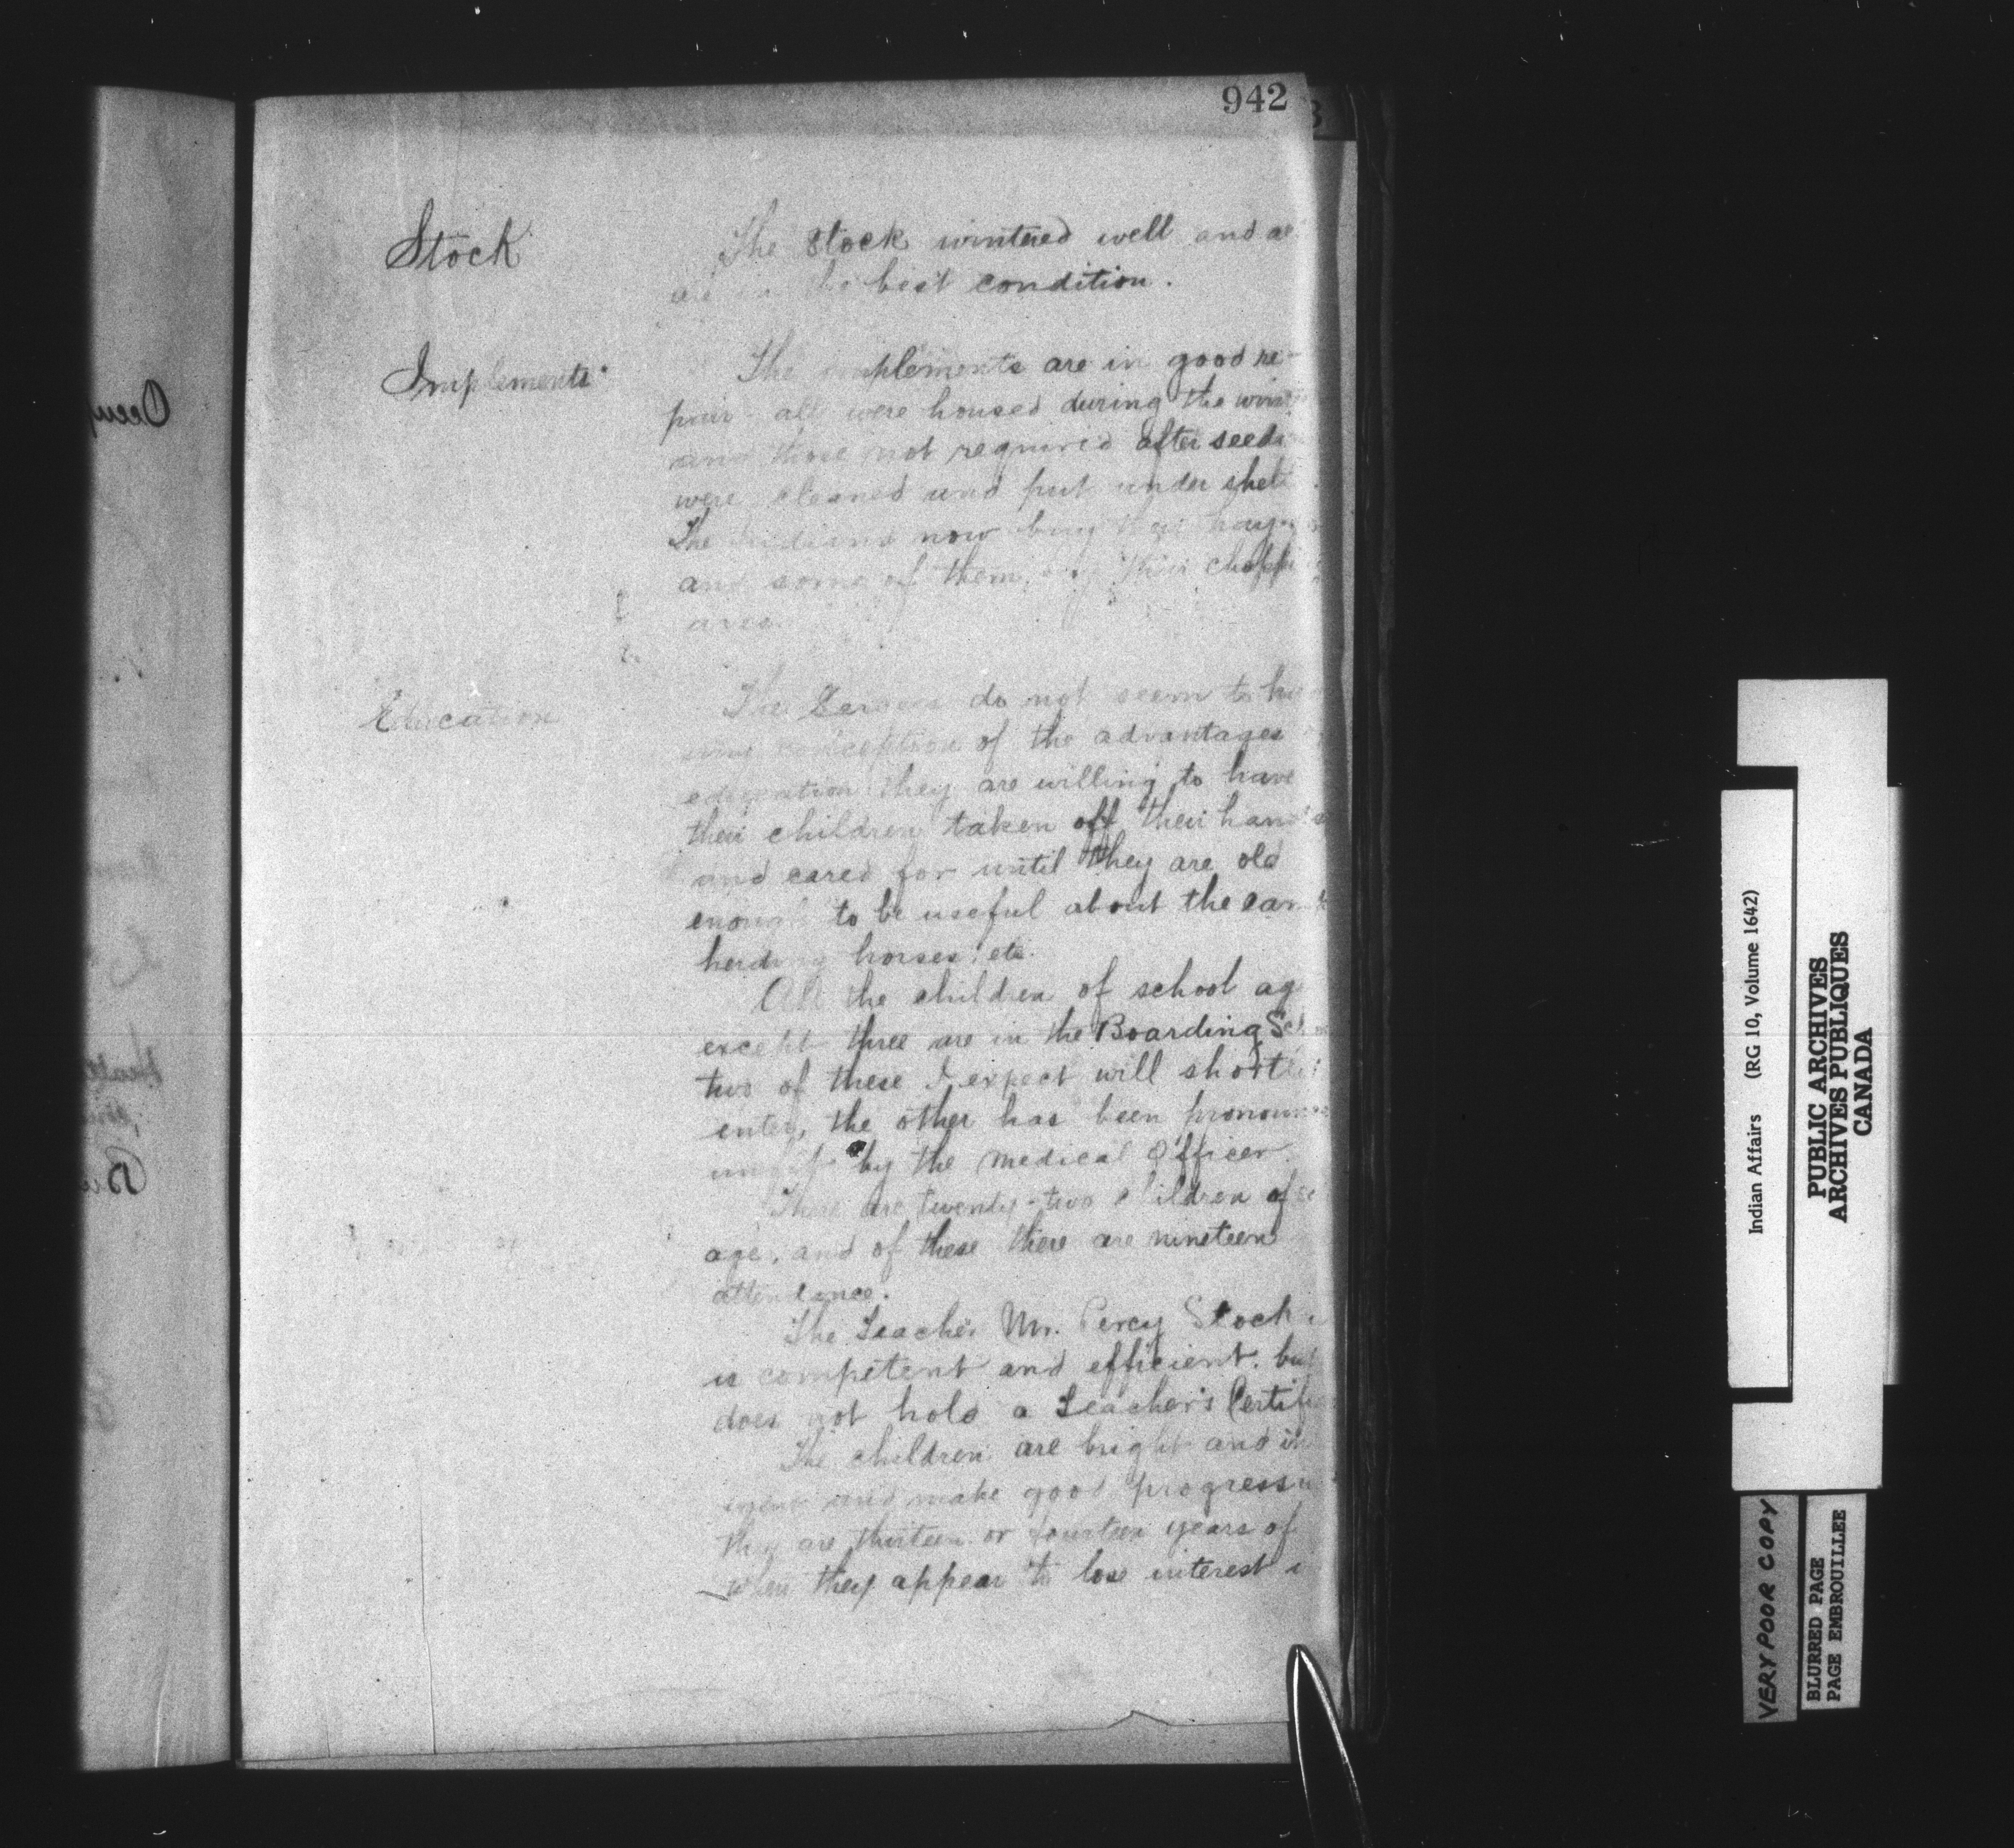 942
Stock
The stock wintered well and
are in the best condition.
Implements
The implements are in good re-
pair - all were housed during the
and those not required after
were cleaned and put under
The Indians now buy their
and some of them, buy their
Education
The Sarcees do not seem to
any conception of the advantages
education they are willing to have
their children taken off their hands
and cared for until they are old
enough to be useful about the
herding horses: etc.
All the children of school
except three are in the Boarding
two of these I expect will
enter, the other has been
unfit by the Medical Officer.
There are twenty-two children of
age, and of these there are nineteen
attendance.
The Teacher Mr. Percy Stock
is competent and efficient. but
does not hold a Teacher's
The children are bright and
and make good progress
they are thirteen or fourteen years of
when they appear to lose interest
Indian Affairs (RG 10, Volume 1642)
PUBLIC ARCHIVES
ARCHIVES PUBLIQUES
CANADA
VERY POOR COPY
BLURRED PAGE
PAGE EMBROUILLEE